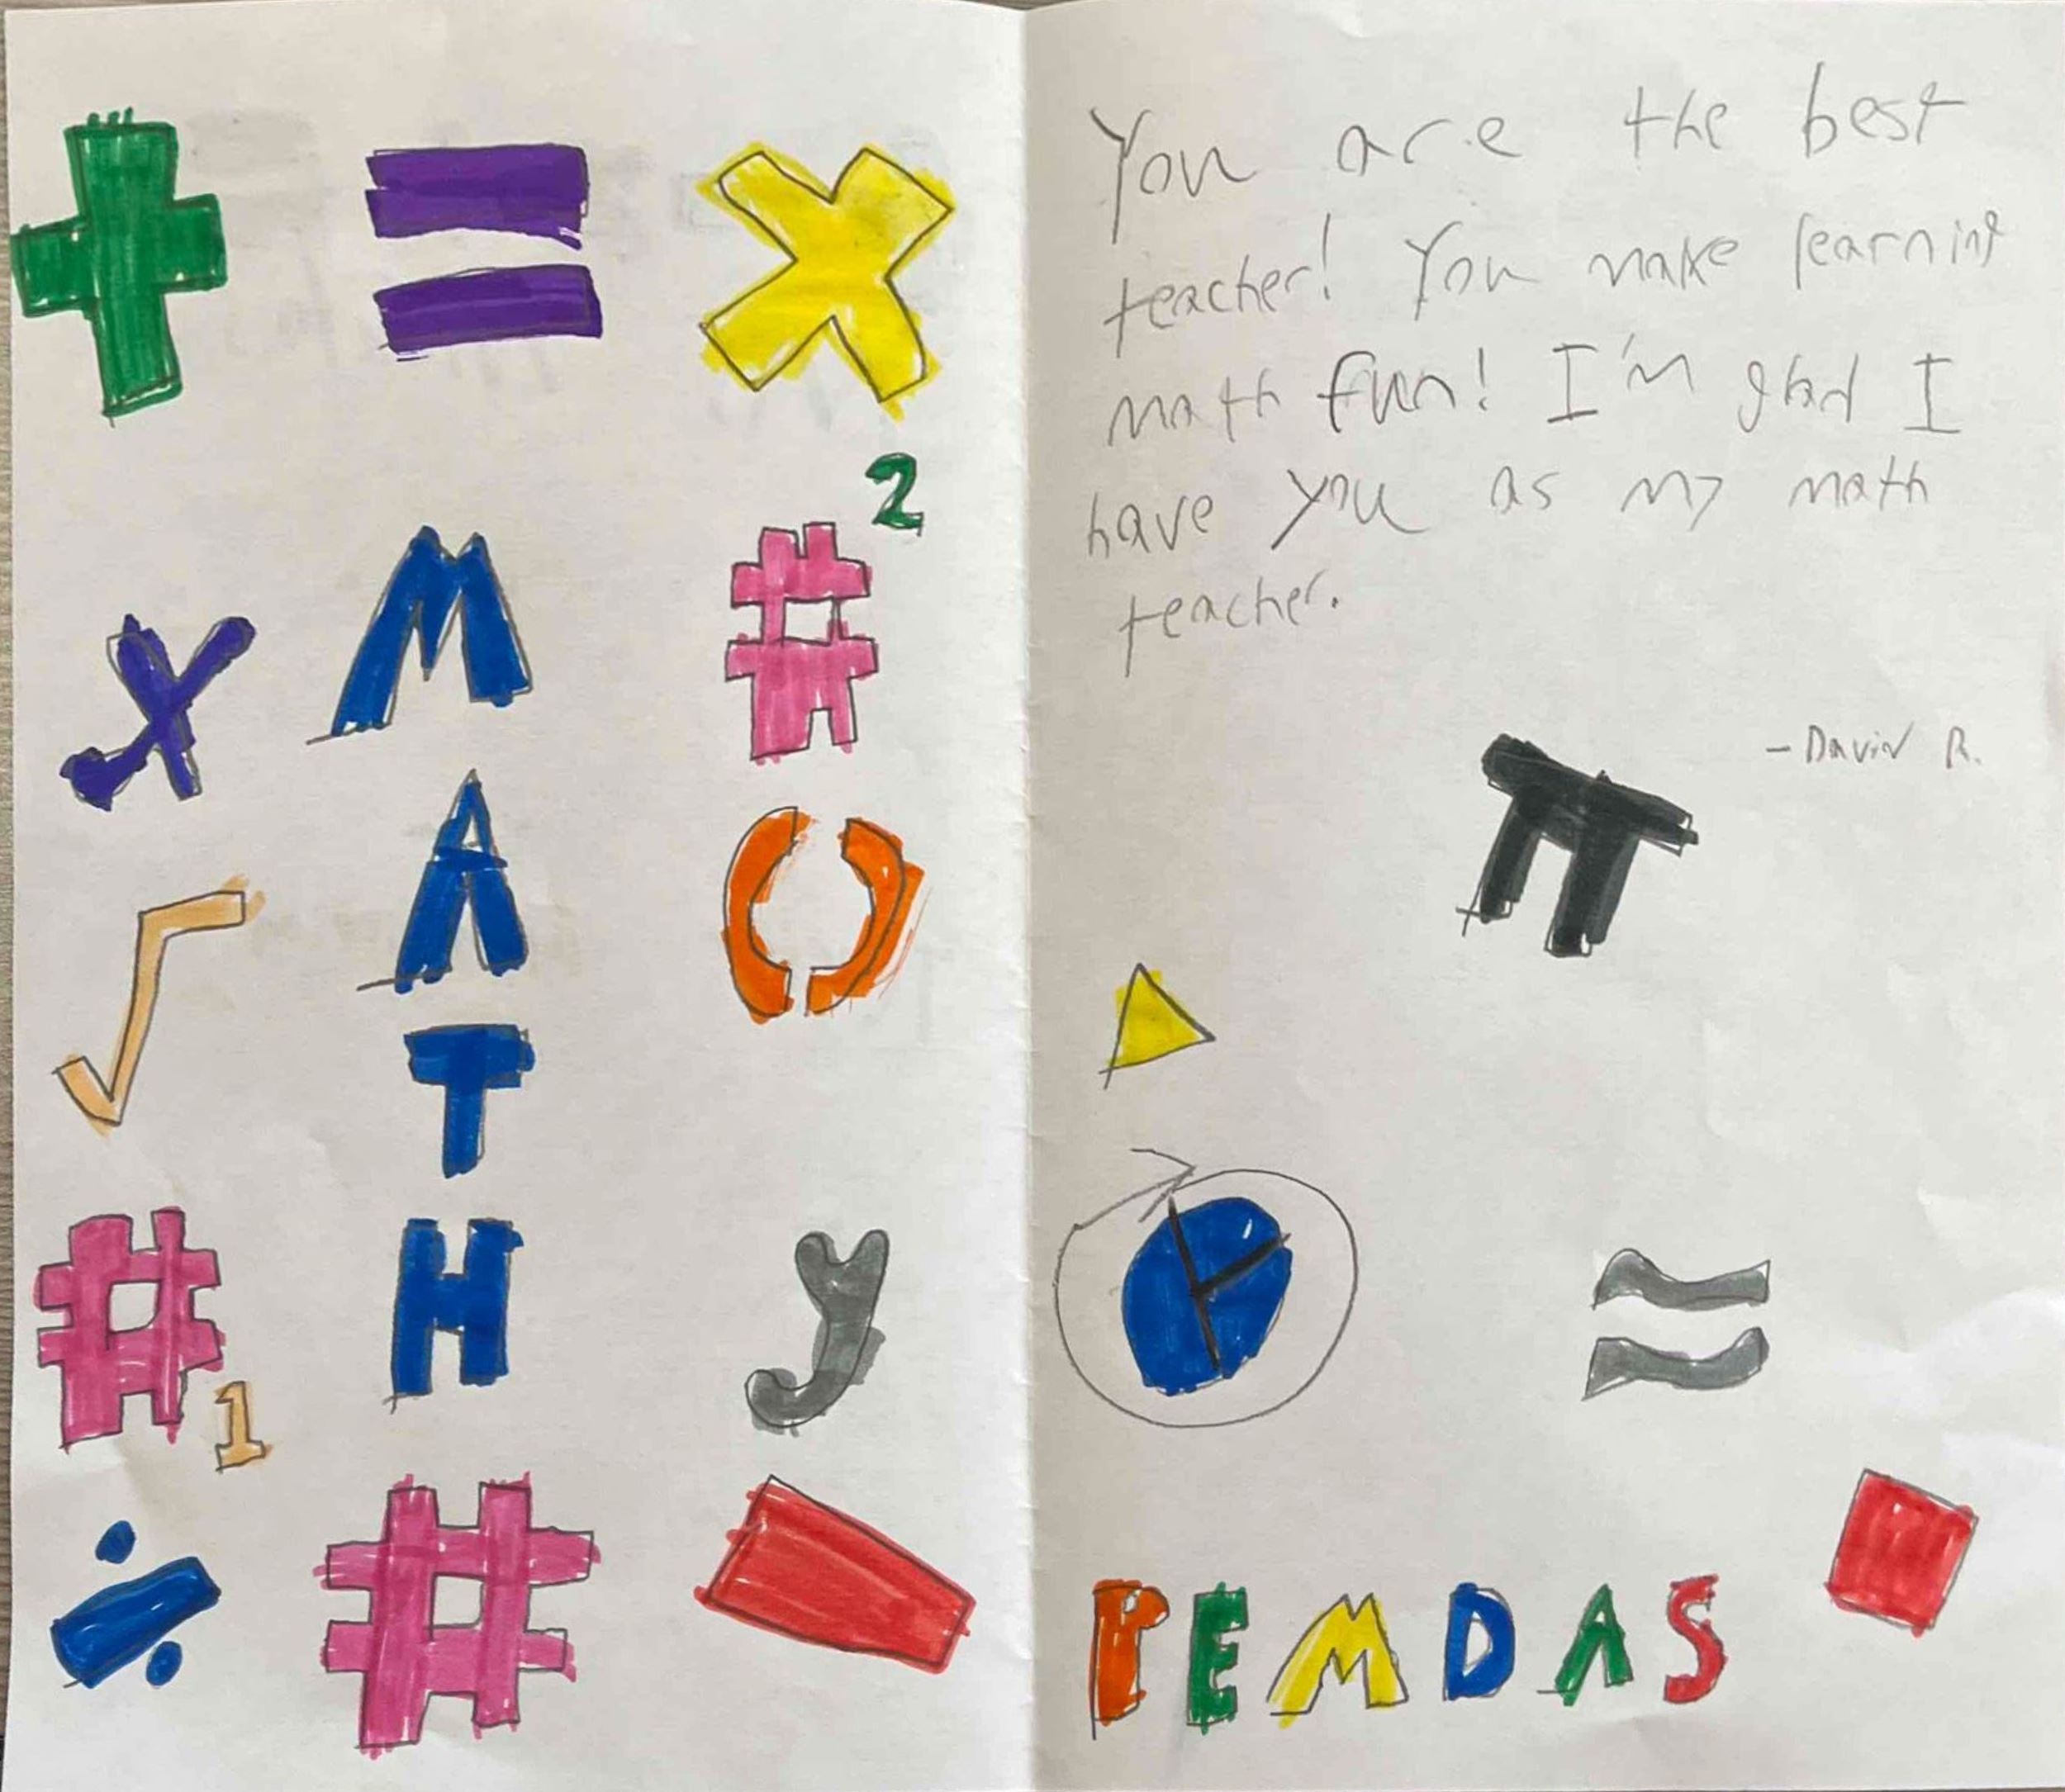 + = x
x M #2
A ( )
√
T
#1 H y
÷ # −
You are the best
teacher! You make learning
math fun! I'm glad I
have you as my math
teacher.
- David R.
π
≈
PEMDAS